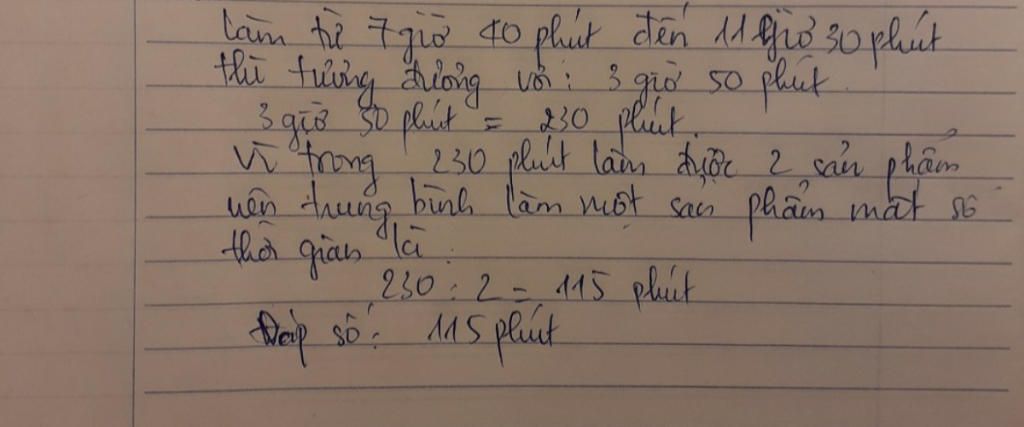 làm từ 7 giờ 40 phút đến 11 giờ 30 phút
thì tương đương với : 3 giờ 50 phút
3 giờ 50 phút = 230 phút.
Vì trong 230 phút làm được 2 sản phẩm
nên trung bình làm một sản phẩm mất số
thời gian là :
230 : 2 = 115 phút
Đáp số : 115 phút